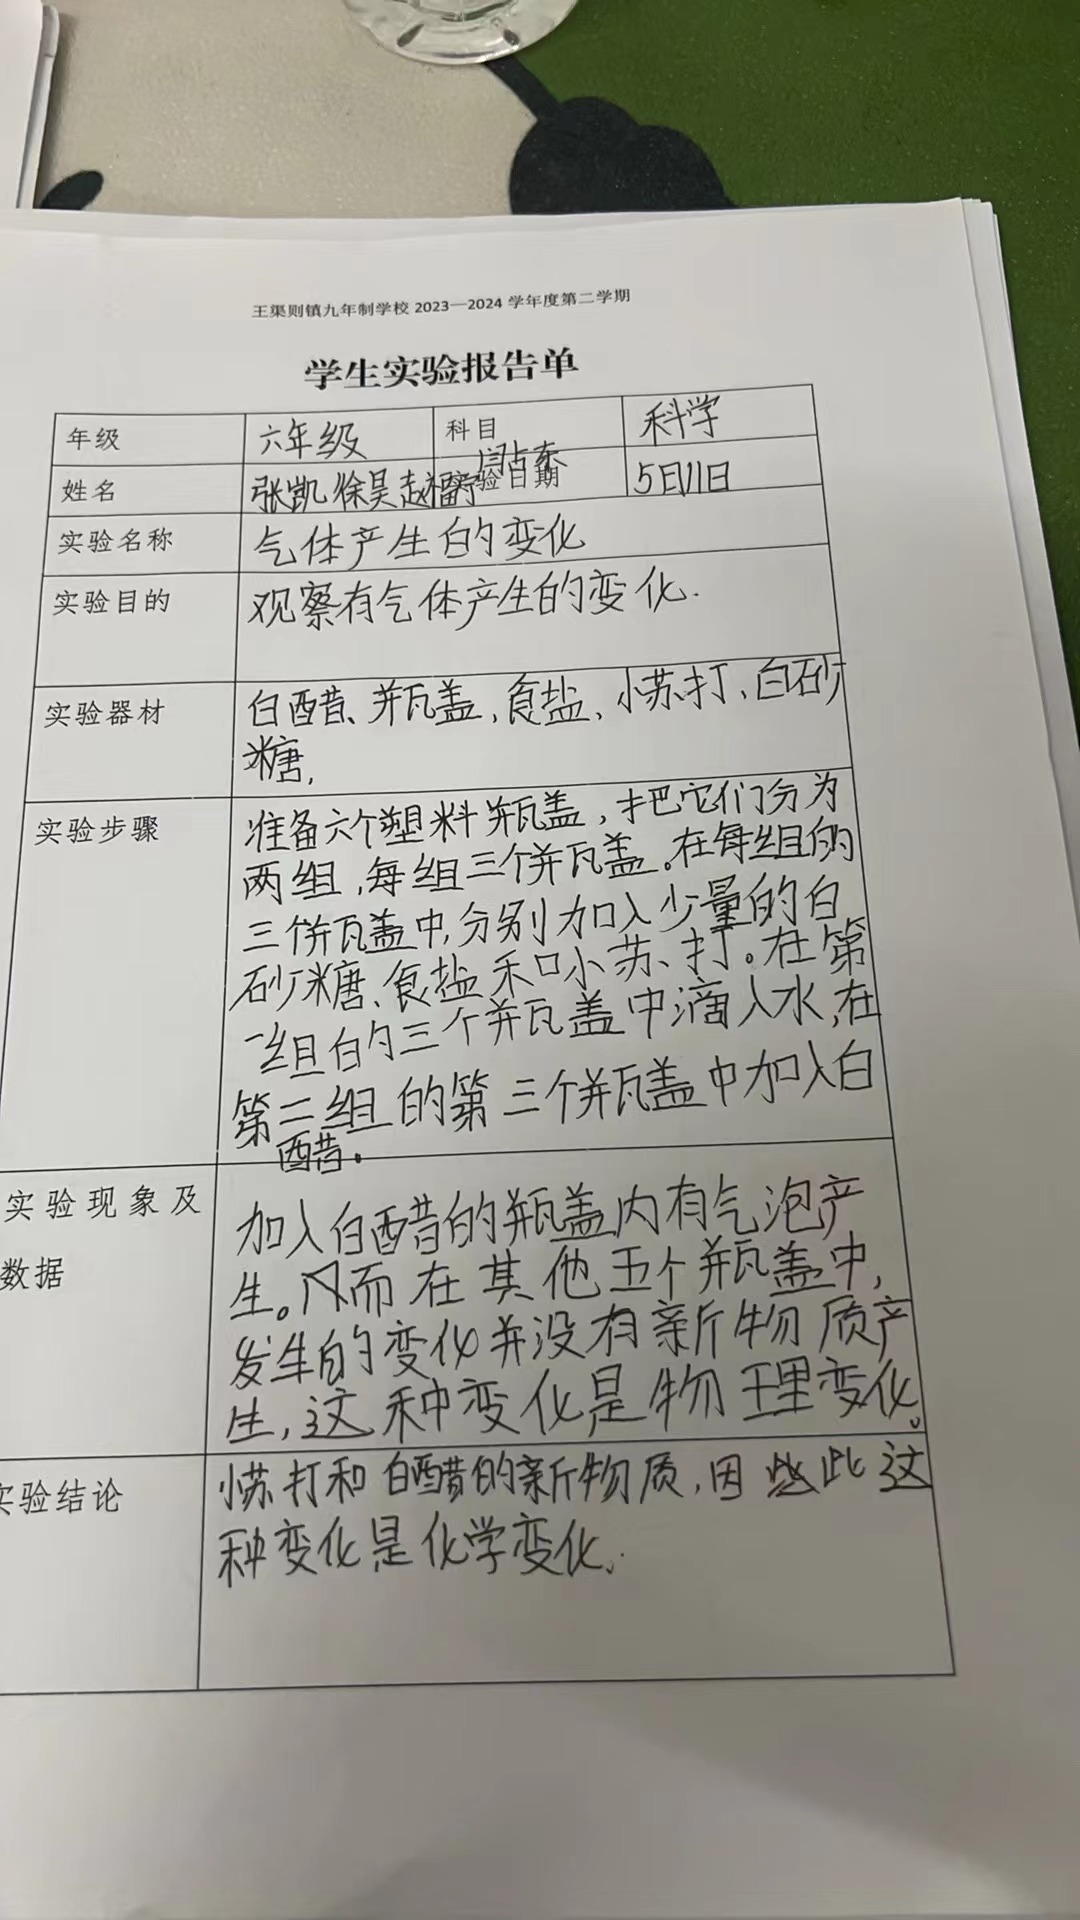 王渠则镇九年制学校 2023—2024 学年度第二学期
学生实验报告单
年级 六年级 科目 科学
闫占东
姓名 张凯 徐昊 赵福宁 实验日期 5日11日
实验名称 气体产生的变化
实验目的 观察有气体产生的变化.
实验器材 白醋、瓶盖、食盐、小苏打、白砂
糖,
实验步骤 准备六个塑料瓶盖,把它们分为
两组,每组三个瓶盖。在每组的
三个瓶盖中,分别加入少量的白
砂糖、食盐和小苏打。在第
一组的三个瓶盖中滴入水,在
第二组的第三个瓶盖中加入白
醋。
实验现象及
数据
加入白醋的瓶盖内有气泡产
生。而在其他五个瓶盖中,
发生的变化并没有新物质产
生,这种变化是物理变化。
实验结论 小苏打和白醋的新物质,因此这
种变化是化学变化.